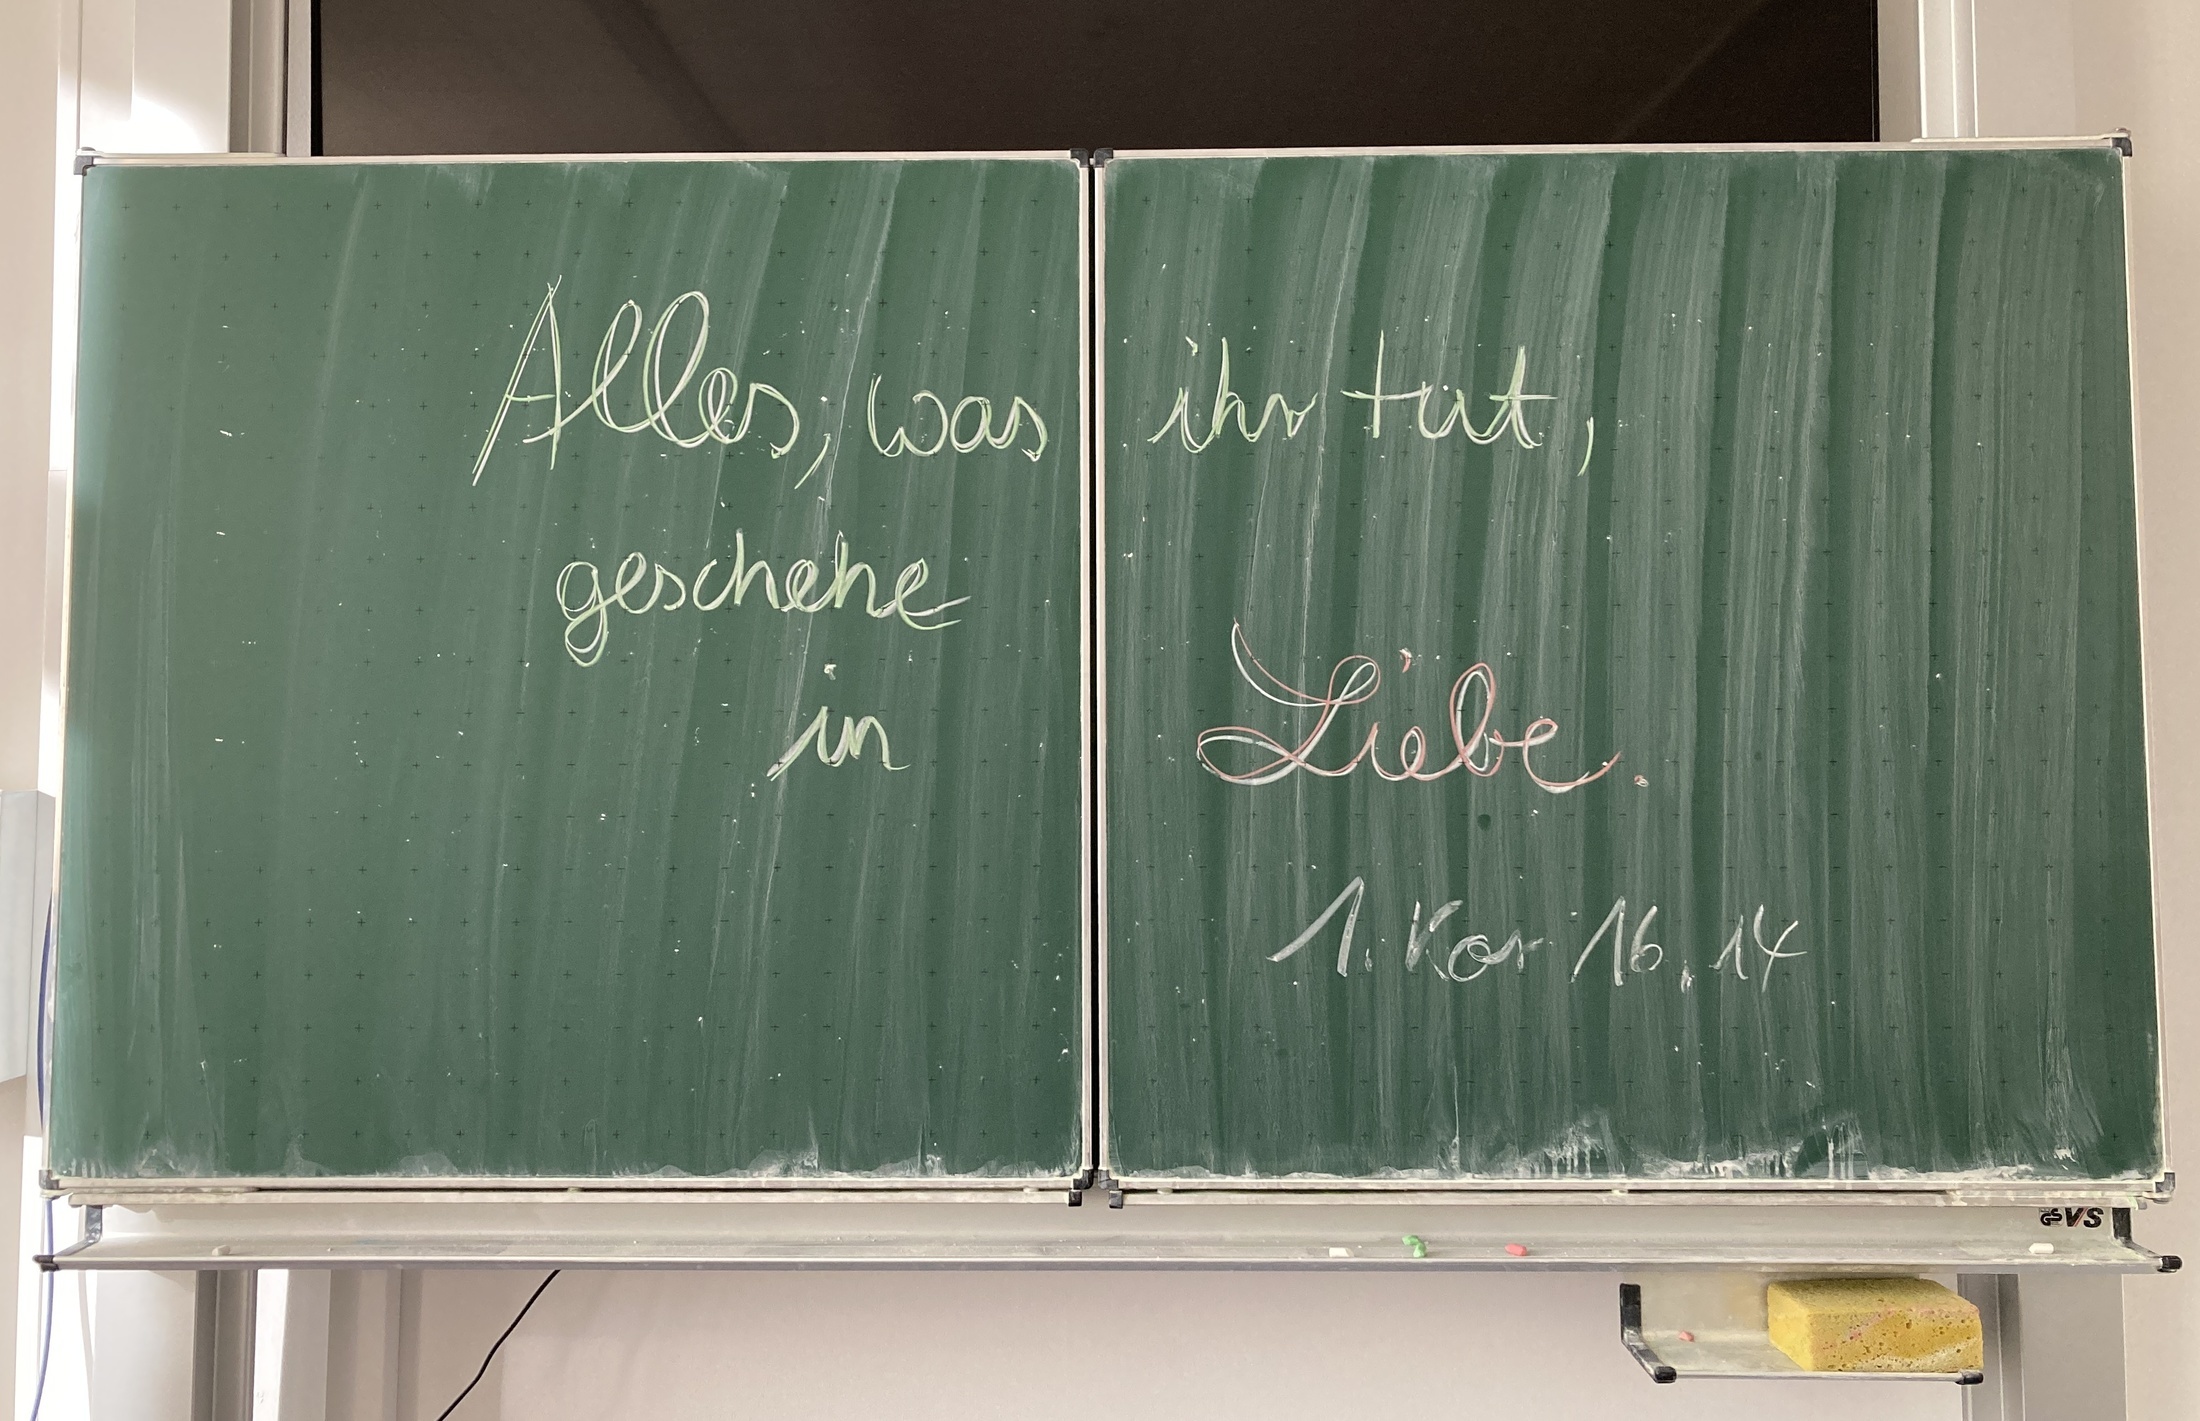 Alles, was ihr tut,
geschehe
in Liebe.
1. Kor 16, 14
GS VS